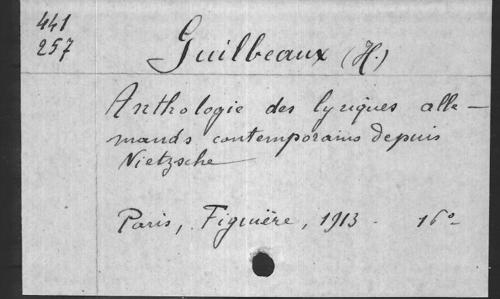 441
257
Guilbeaux (H.)
Anthologie des lyriques alle-
mands contemporains depuis
Nietzsche
Paris, Figuière, 1913 - 16°